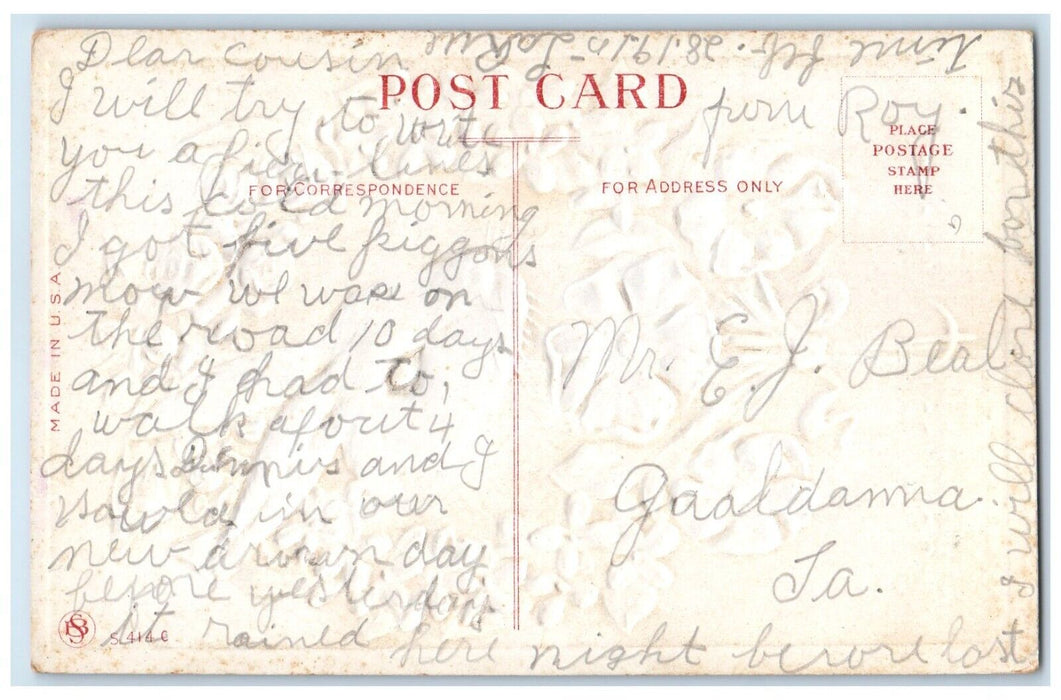 Dear cousin
I will try to write
you a few lines
this cold morning
I got five piggons
now we was on
the road 10 days
and I had to,
walk afout 4
days and I
in our
new day
before yesterday
it rained here night before last
I will close for this
time Feb. 28. 1915
from Roy.
POST CARD
FOR CORRESPONDENCE
FOR ADDRESS ONLY
PLACE
POSTAGE
STAMP
HERE
Mr. E. J. Beal
Ia.
MADE IN U.S.A.
S 414 C